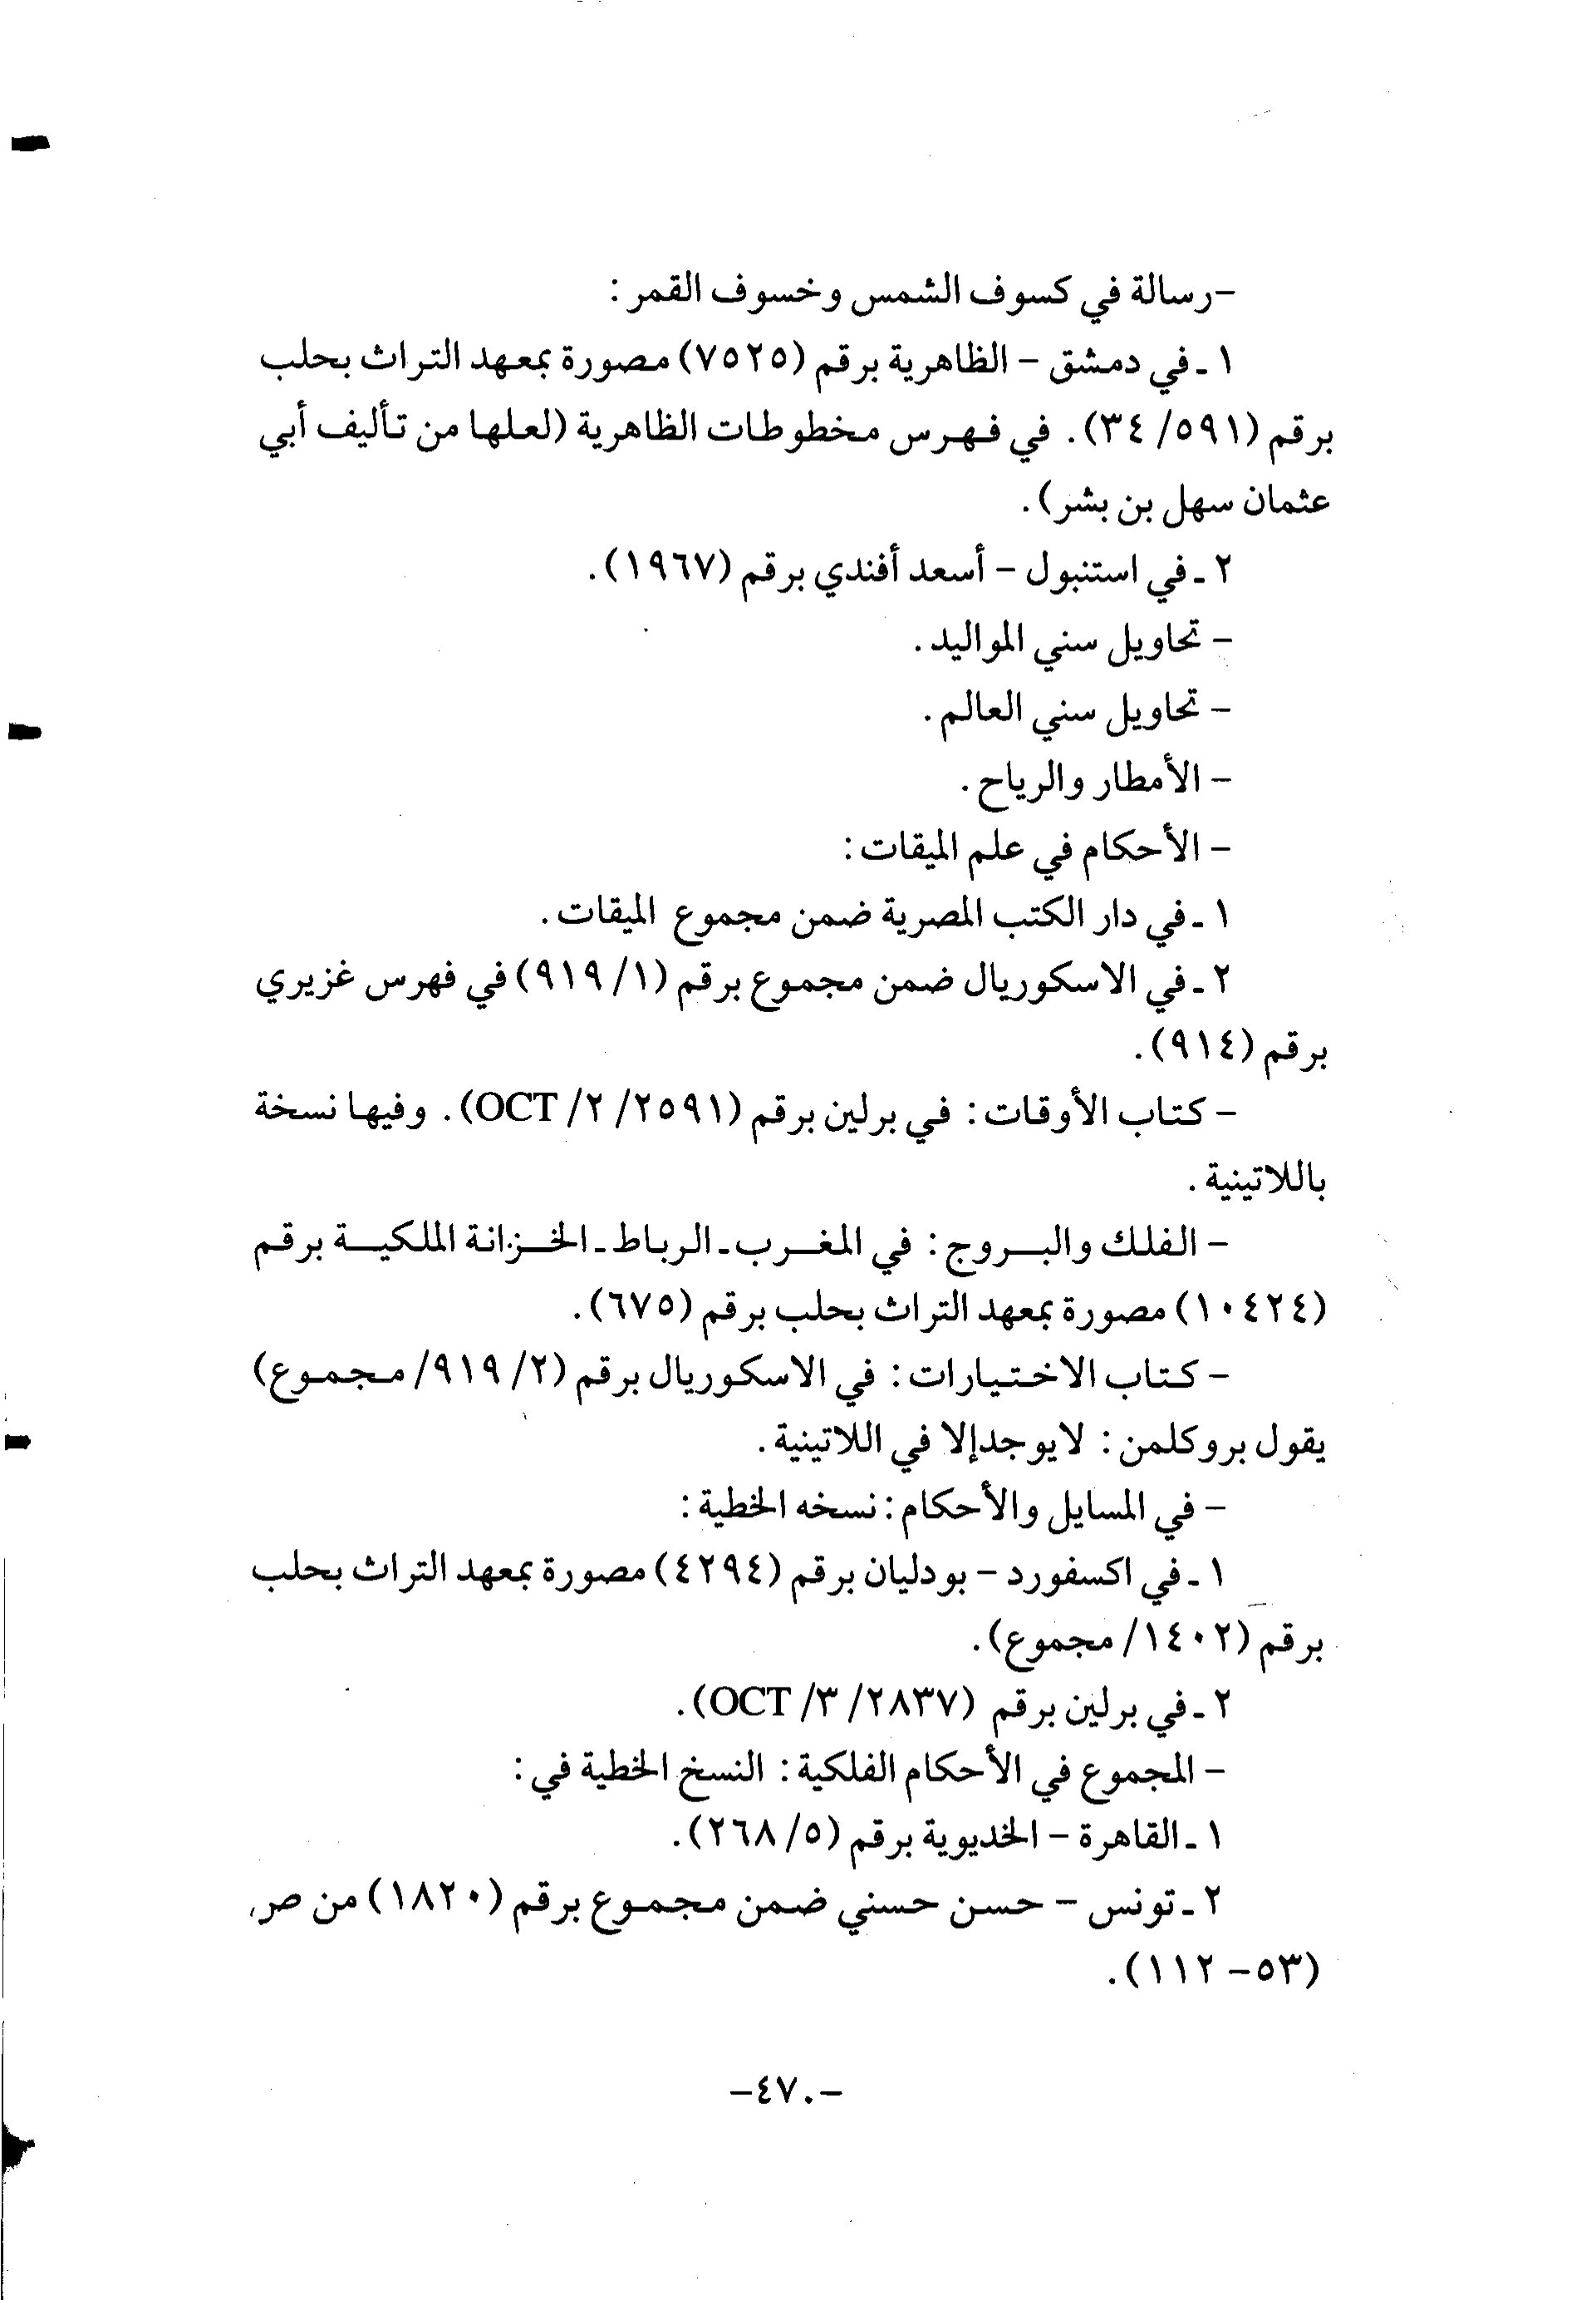 -رسالة في كسوف الشمس وخسوف القمر :
١ ـ في دمشق - الظاهرية برقم (٧٥٢٥) مصورة بمعهد التراث بحلب
برقم (٥٩١/ ٣٤). في فهرس مخطوطات الظاهرية (لعلها من تأليف أبي
عثمان سهل بن بشر).
٢ ـ في استنبول - أسعد أفندي برقم (١٩٦٧).
- تحاويل سني المواليد.
- تحاويل سني العالم.
- الأمطار والرياح.
- الأحكام في علم الميقات:
١ ـ في دار الكتب المصرية ضمن مجموع الميقات.
٢ ـ في الاسكوريال ضمن مجموع برقم (١/ ٩١٩) في فهرس غزيري
برقم (٩١٤).
- كتاب الأوقات: في برلين برقم (٢٥٩١/ ٢/ OCT). وفيها نسخة
باللاتينية.
- الفلك والبروج: في المغرب ـ الرباط ـ الخزانة الملكية برقم
(١٠٤٢٤) مصورة بمعهد التراث بحلب برقم (٦٧٥).
- كتاب الاختيارات: في الاسكوريال برقم (٢/ ٩١٩/ مجموع)
يقول بروكلمن: لايوجدإلا في اللاتينية.
- في المسايل والأحكام: نسخه الخطية:
١ ـ في اكسفورد - بودليان برقم (٤٢٩٤) مصورة بمعهد التراث بحلب
برقم (١٤٠٢/ مجموع).
٢ ـ في برلين برقم (٢٨٣٧/ ٣/ OCT).
- المجموع في الأحكام الفلكية: النسخ الخطية في:
١ ـ القاهرة - الخديوية برقم (٥/ ٢٦٨).
٢ ـ تونس - حسن حسني ضمن مجموع برقم (١٨٢٠) من ص
(٥٣- ١١٢).
-٤٧٠-